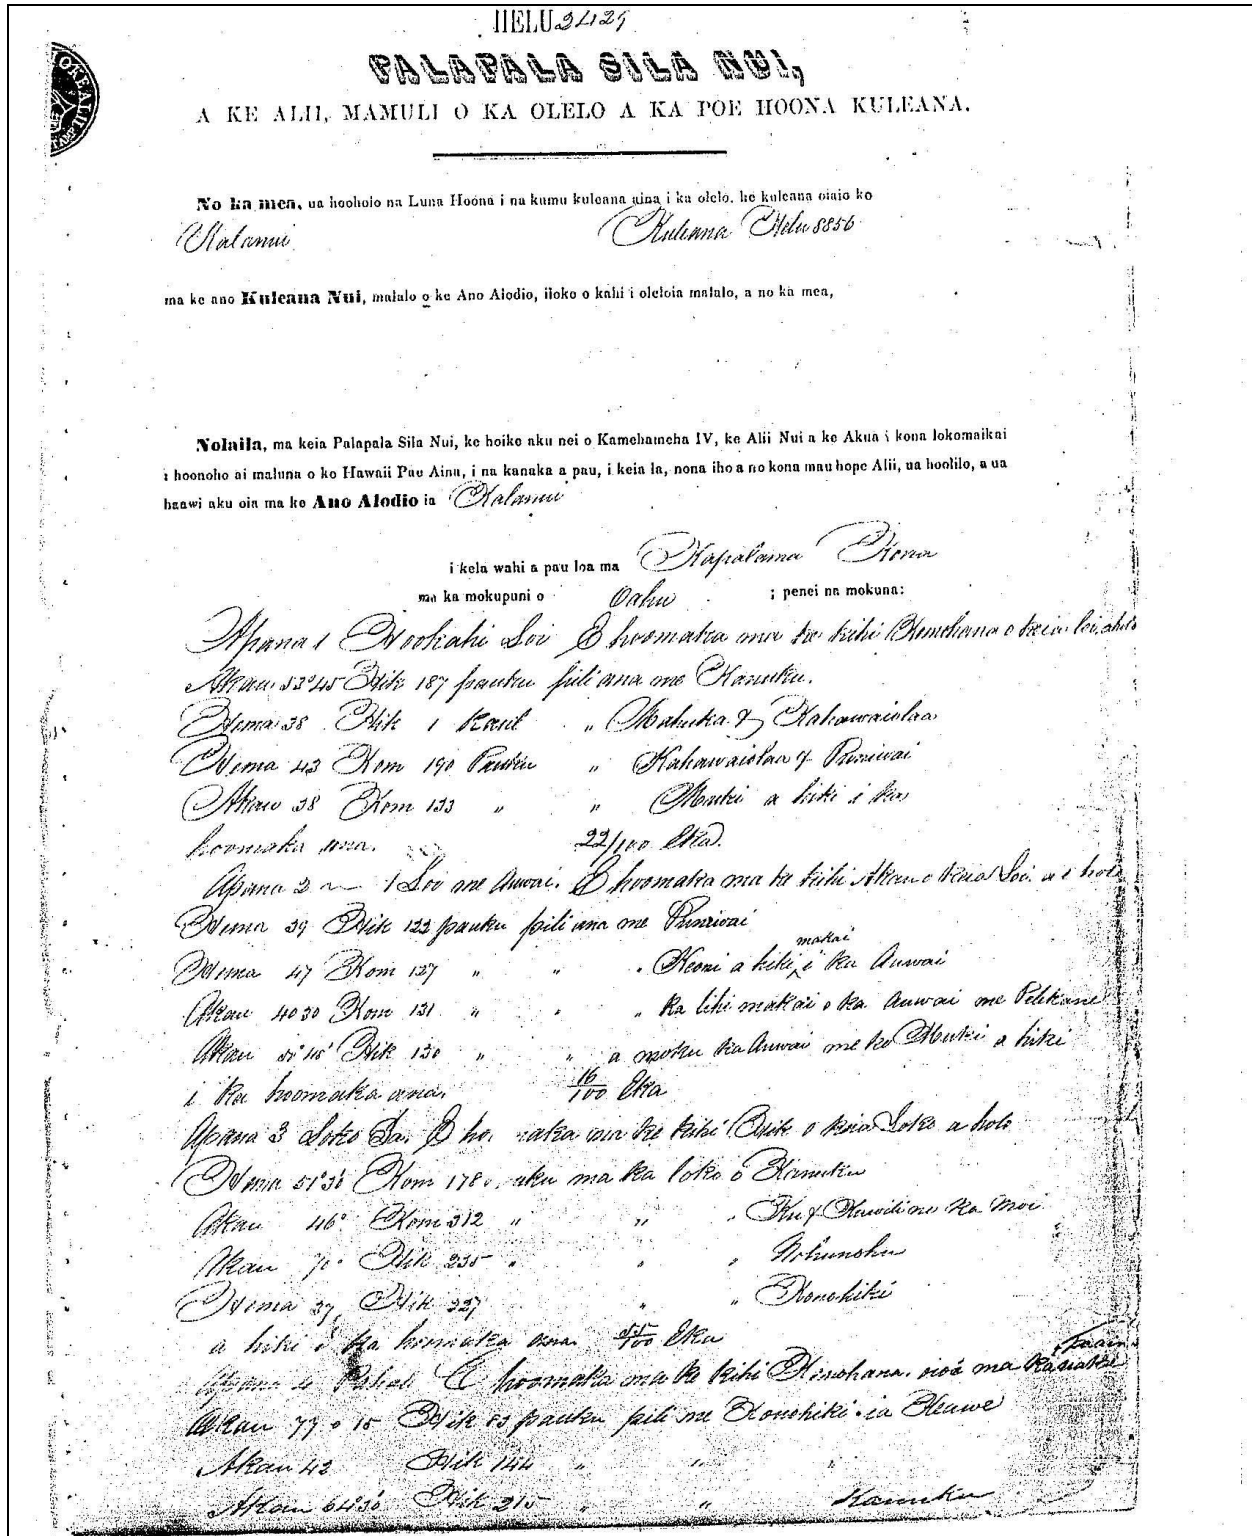 HELU 2429
PALAPALA SILA NUI,
A KE ALII, MAMULI O KA OLELO A KA POE HOONA KULEANA.
No ka mea, ua hooholo na Luna Hoona i na kumu kuleana aina i ka olelo, he kuleana oiaio ko
Kalamu Kuleana Helu 8856
ma ke ano Kuleana Nui, malalo o ke Ano Alodio, iloko o kahi i oleloia malalo, a no ka mea,
Nolaila, ma keia Palapala Sila Nui, ke hoike aku nei o Kamehameha IV, ke Alii Nui a ke Akua i kona lokomaikai
i hoonoho ai maluna o ko Hawaii Pae Aina, i na kanaka a pau, i keia la, nona iho a no kona mau hope Alii, ua hoolilo, a ua
haawi aku oia ma ke Ano Alodio ia Kalamu
i kela wahi a pau loa ma Kapalama Kona
ma ka mokupuni o Oahu ; penei na mokuna:
Apana 1 Hookahi Loi E hoomaka ma ke kihi Komohana o keia loi, a holo
Akau 53°45 Hik 187 pauku pili ana me Kanuku.
Hema 38 Hik 1 Kaul " Mahuka & Kahawaiolaa
Hema 43 Kom 190 Pauku " Kahawaiolaa & Puniwai
Akau 38 Kom 133 " " Muki a hiki i ka
hoomaka ana. 22/100 Eka.
Apana 2 1 Loi me Auwai. E hoomaka ma ke kihi Akau o keia Loi. a i holo
Hema 39 Hik 122 pauku pili ana me Puniwai
Hema 47 Kom 127 " " " Keoni a hiki makai i ka Auwai
Akau 40 30 Kom 131 " " " ka lihi makai o ka Auwai me Pelekane
Akau 51°45' Hik 130 " " a moku ka Auwai me ko Muki a hiki
i ka hoomaka ana. 16/100 Eka
Apana 3 Loko Ia. E ho maka ma ke kihi Hik o keia Loko a holo
Hema 51°30' Kom 178 auku ma ka loko o Kanuku
Akau 46° Kom 312 " " " Ku & Kuwili no ka Moi
Akau 70° Hik 235 " " " Nohunohu
Hema 37 Hik 227 " " Konohiki
a hiki i ka hoomaka ana. 55/100 Eka
Apana 4 Pahale E hoomaka ma ke kihi Komohana. oioi ma ka
Akau 77 0 15 Hik 83 pauku pili me Konohiki ia Keuwe
Akau 42 Hik 144 " " "
Akau 64°30' Hik 215 " " Kanuku